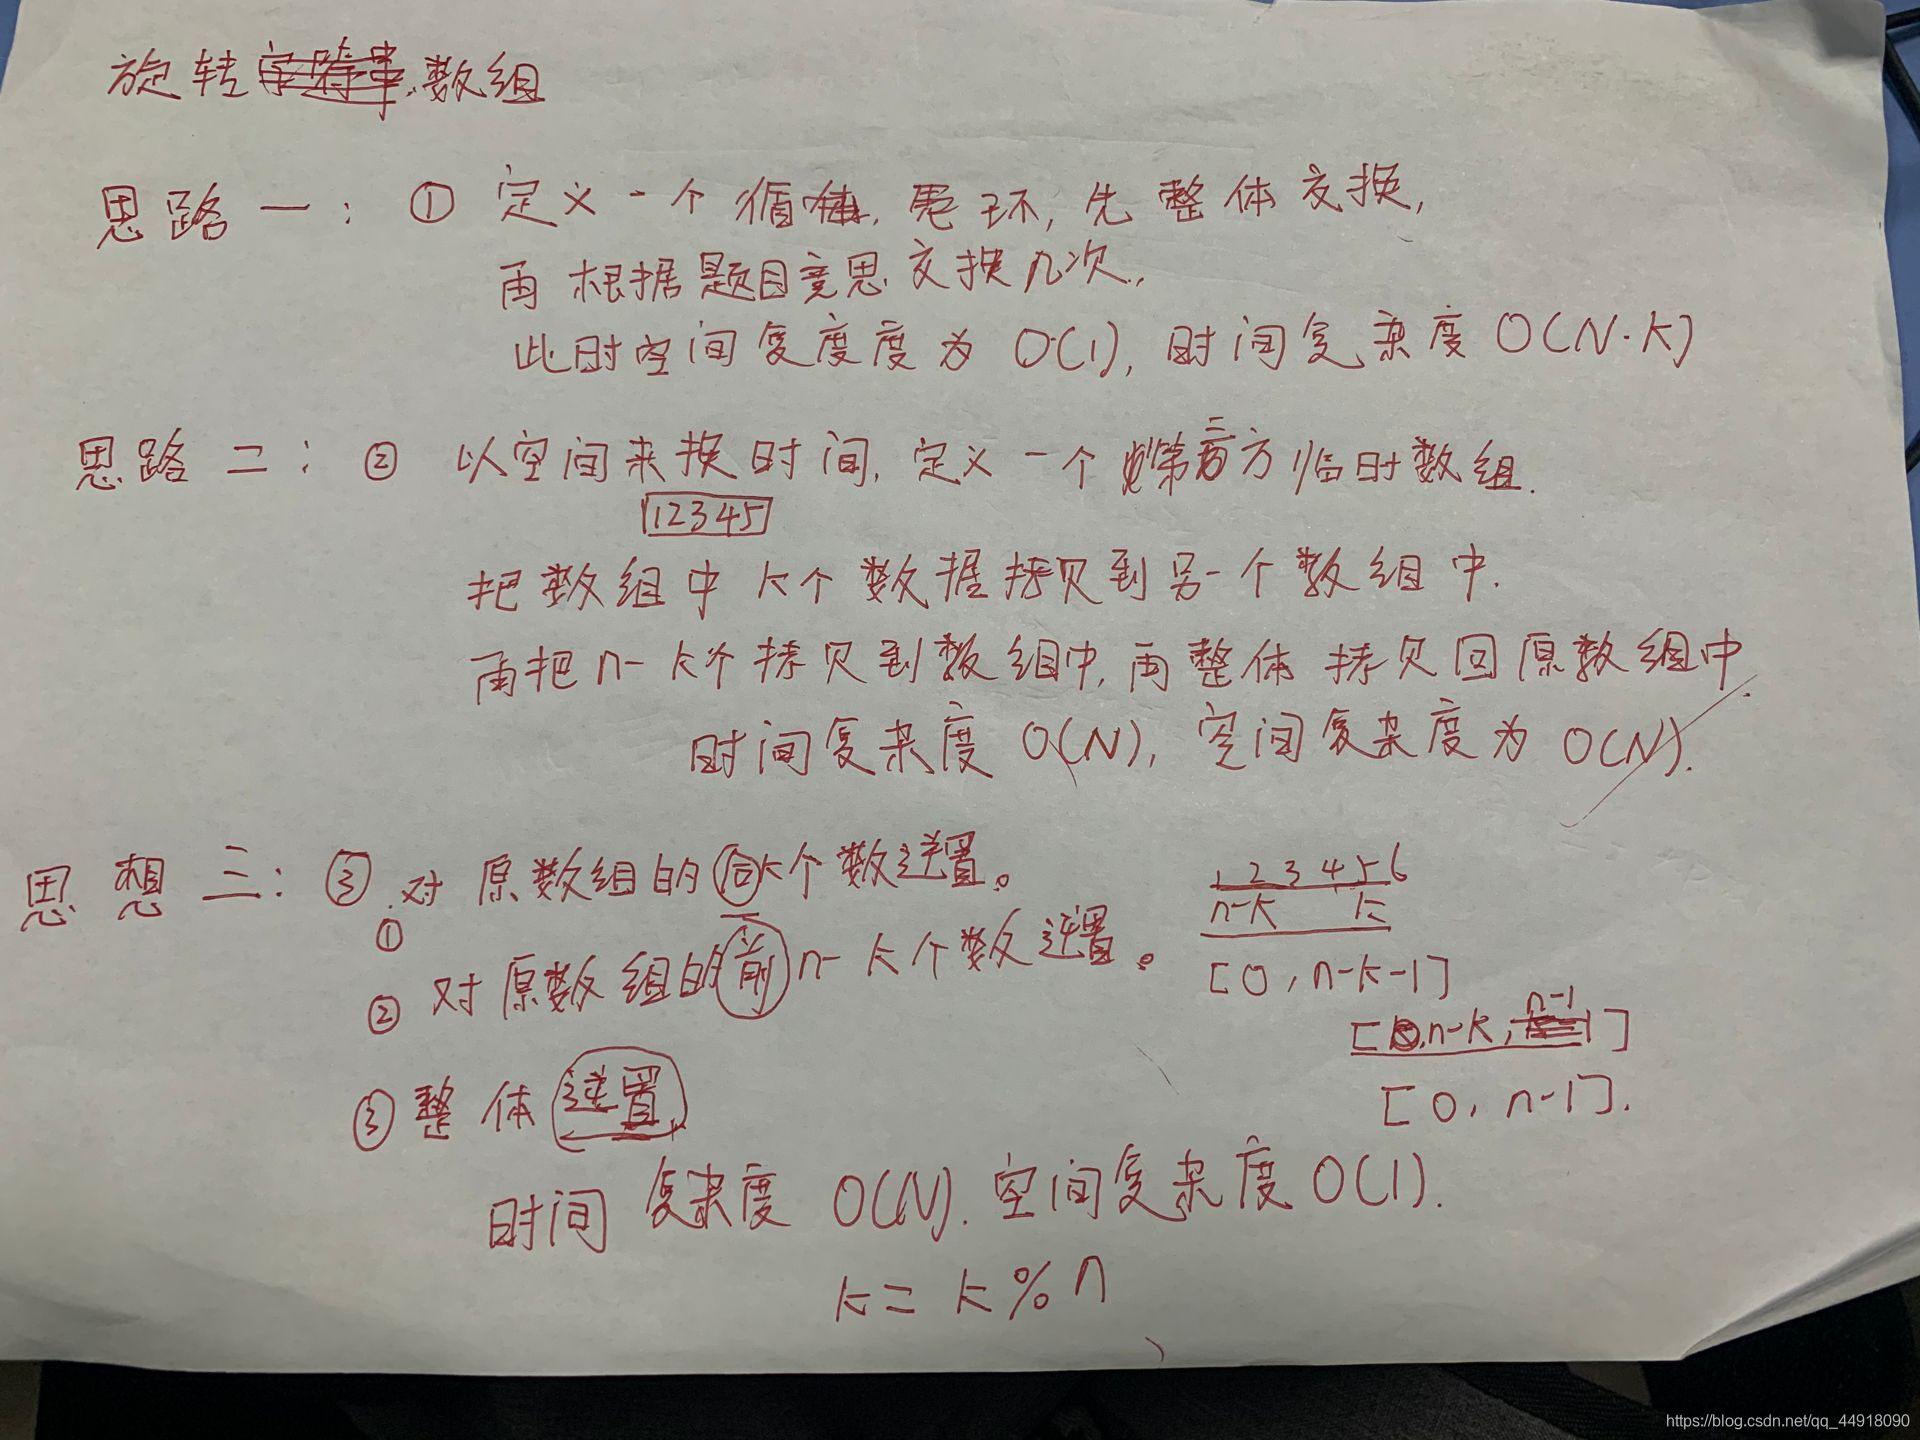 旋转数组
思路一：① 定义一个循环，先整体交换，
再根据题目意思交换几次.
此时空间复度度为O(1)，时间复杂度O(N·K)
思路二：② 以空间来换时间，定义一个临时数组.
12345
把数组中K个数据拷贝到另一个数组中.
再把n-k个拷贝到数组中，再整体拷贝回原数组中.
时间复杂度O(N)，空间复杂度为O(N).
思想三：③
① 对原数组的后K个数逆置。
② 对原数组的前n-k个数逆置。
③ 整体逆置
1 2 3 4 5 6
n-k k
[0, n-k-1]
[n-k, n-1]
[0, n-1].
时间复杂度O(N). 空间复杂度O(1).
k = k % n
https://blog.csdn.net/qq_44918090